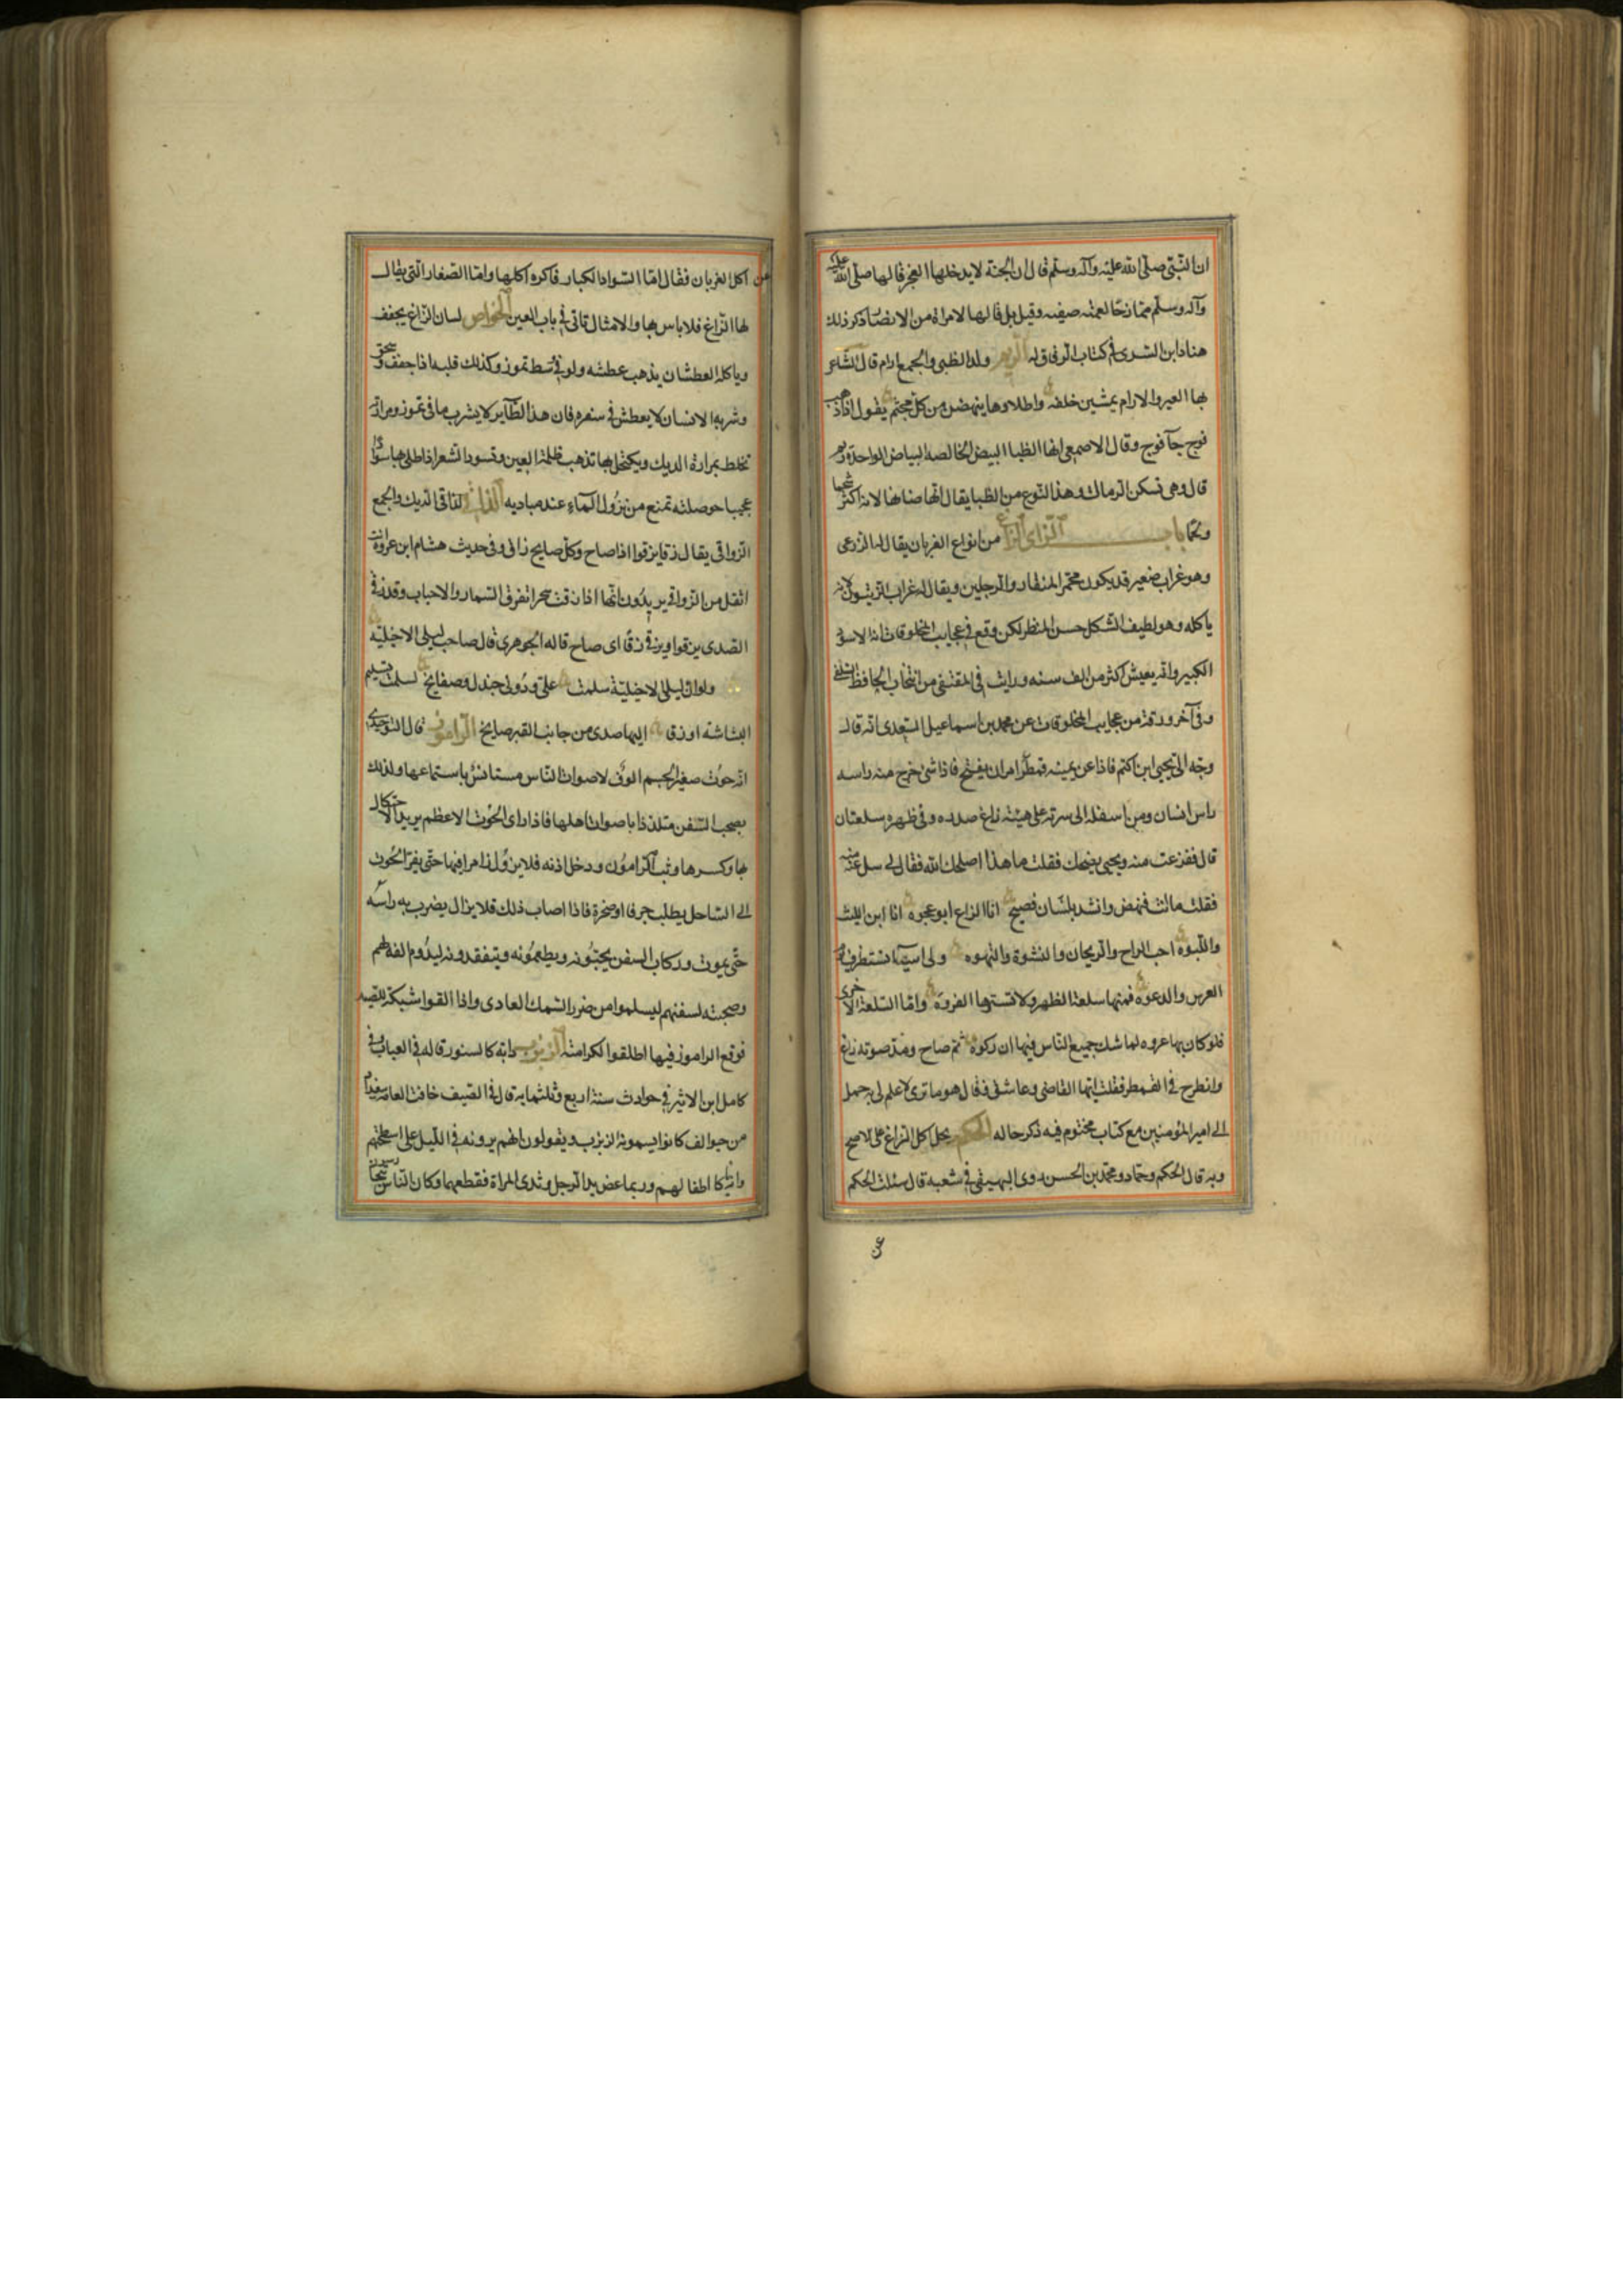 ان النبی صلی الله علیه وآله وسلم قال ان الجنة لا یدخلها العجز قالها صلی الله علیه
وآله وسلم ممازحا لعمته صفیه وقیل بل قالها لامراة من الانصار ذکر ذلك
هناد ابن السری فی کتاب الرقاق له الریم ولد الظبی والجمع ارام قال الشاعر
بها العیر والارام یمشین خلفه واطلاوها ینهضن من کل مجثم یقول اذا ذهب
فوج جآ فوج وقال الاصمعی انها الظبا البیض الخالصه البیاض الواحدة ریم
قال وهی تسکن الرمال وهذا النوع من الظبا یقال انها ضانها لانه اکثر شحما
ولحما باب الزای الزاغ من انواع الغربان یقال له الزرعی
وهو غراب صغیر قد یکون محمر المنقار والرجلین ویقال له غراب الزیتون لانه
یاکله وهو لطیف الشکل حسن المنظر لکن وقع فی عجایب المخلوقات انه الاسود
الکبیر وانه یعیش اکثر من الف سنه ورایت فی المقتفی من انتخاب الحافظ السلفی
وفی آخر ورقة من عجایب المخلوقات عن محمد بن اسماعیل السعدی انه قال
وجه الی یحیی ابن اکثم فاذا عن یمینه قمطر امر ان یفتح فاذا شئ خرج منه راسه
راس انسان ومن اسفله الی سرته علی هیئة زاغ صدره وفی ظهره سلعتان
قال ففزعت منه ویحیی یضحك فقلت ما هذا اصلحك الله فقال لی سل عنه منه
فقلت ما انت فنهض وانشد بلسان فصیح انا الزاغ ابو عجوه انا ابن اللیث
واللبوه احب الراح والریحان والنشوة والقهوه ولی اشیآ تستظرف یوم
العرس والدعوه فمنها سلعة الظهر ولا تسترها الفروه واما السلعة الاخری
فلو کان بها عروه لما شك جمیع الناس فیها ان رکوه ثم صاح ومد صوته زاغ
وانطرح فی القمطر فقلت ایها القاضی وعاشق فقال هو ما تری لا علم لی به حمل
الی امیر المؤمنین مع کتاب مختوم فیه ذکر حاله الحکم یحل اکل الزاغ علی الاصح
وبه قال الحکم وحماد ومحمد بن الحسن روی البیهقی فی شعبه قال سئلت الحکم
عن
عن اکل الغربان فقال اما السواد الکبار فاکره اکلها واما الصغار التی یقال
لها الزاغ فلا باس بها والامثال تاتی فی باب العین الخواص لسان الزاغ یجفف
ویاکله العطشان یذهب عطشه ولو فی وسط تموز وکذلك قلبه اذا جفف وسحق
وشربه الانسان لا یعطش فی سفره فان هذا الطآیر لا یشرب ما فی تموز ومرارته
تخلط بمرارة الدیك ویکتحل بها تذهب ظلمة العین وتسود الشعر اذا طلی بها سوادا
عجیبا حوصلته تمنع من نزول المآء عند مبادیه الزاقی الدیك والجمع
الزواقی یقال زقا یزقوا اذا صاح وکل صایح زاق وفی حدیث هشام ابن عروة انت
اثقل من الزواقی یریدون انها اذا زقت سحرا تفرق السمار والاحباب وقد زقی
الصدی یزقوا ویزقی زقا ای صاح قاله الجوهری قال صاحب لیلی الاخیلیة
ولو ان لیلی الاخیلیة سلمت علی ودونی جندل وصفایح لسلمت تسلیم
البشاشة او زقا الیها صدی من جانب القبر صایح الزامور قال التوحیدی
انه حوت صغیر الجسم الوف لاصوات الناس مستانس باستماعها ولذلك
یصحب السفن متلذذا باصوات اهلها فاذا رای الحوت الاعظم یرید الاحتکاك
بها وکسرها وثب الزامور ودخل اذنه فلا یزول زامرا فیها حتی یفر الحوت
الی الساحل یطلب جرفا او صخرة فاذا اصاب ذلك فلا یزال یضرب به راسه
حتی یموت ورکاب السفن یحبونه ویطعمونه ویتفقدونه لیدوم الفه لهم
وصحبته لسفنهم لیسلموا من ضرر السمك العادی واذا القوا شبکة للصید
فوقع الزامور فیها اطلقوا لکرامته الزبزب دابه کالسنور قاله فی العباب وفی
کامل ابن الاثیر فی حوادث سنة اربع وثلثمایه قال فی الصیف خافت العامه ببغداد
من حیوا لف کانوا یسمونه الزبزب ویقولون انهم یرونه فی اللیل علی اسطحتهم
وانه یاکل اطفالهم وربما عض ید الرجل وثدی المراة فقطعهما وکان الناس